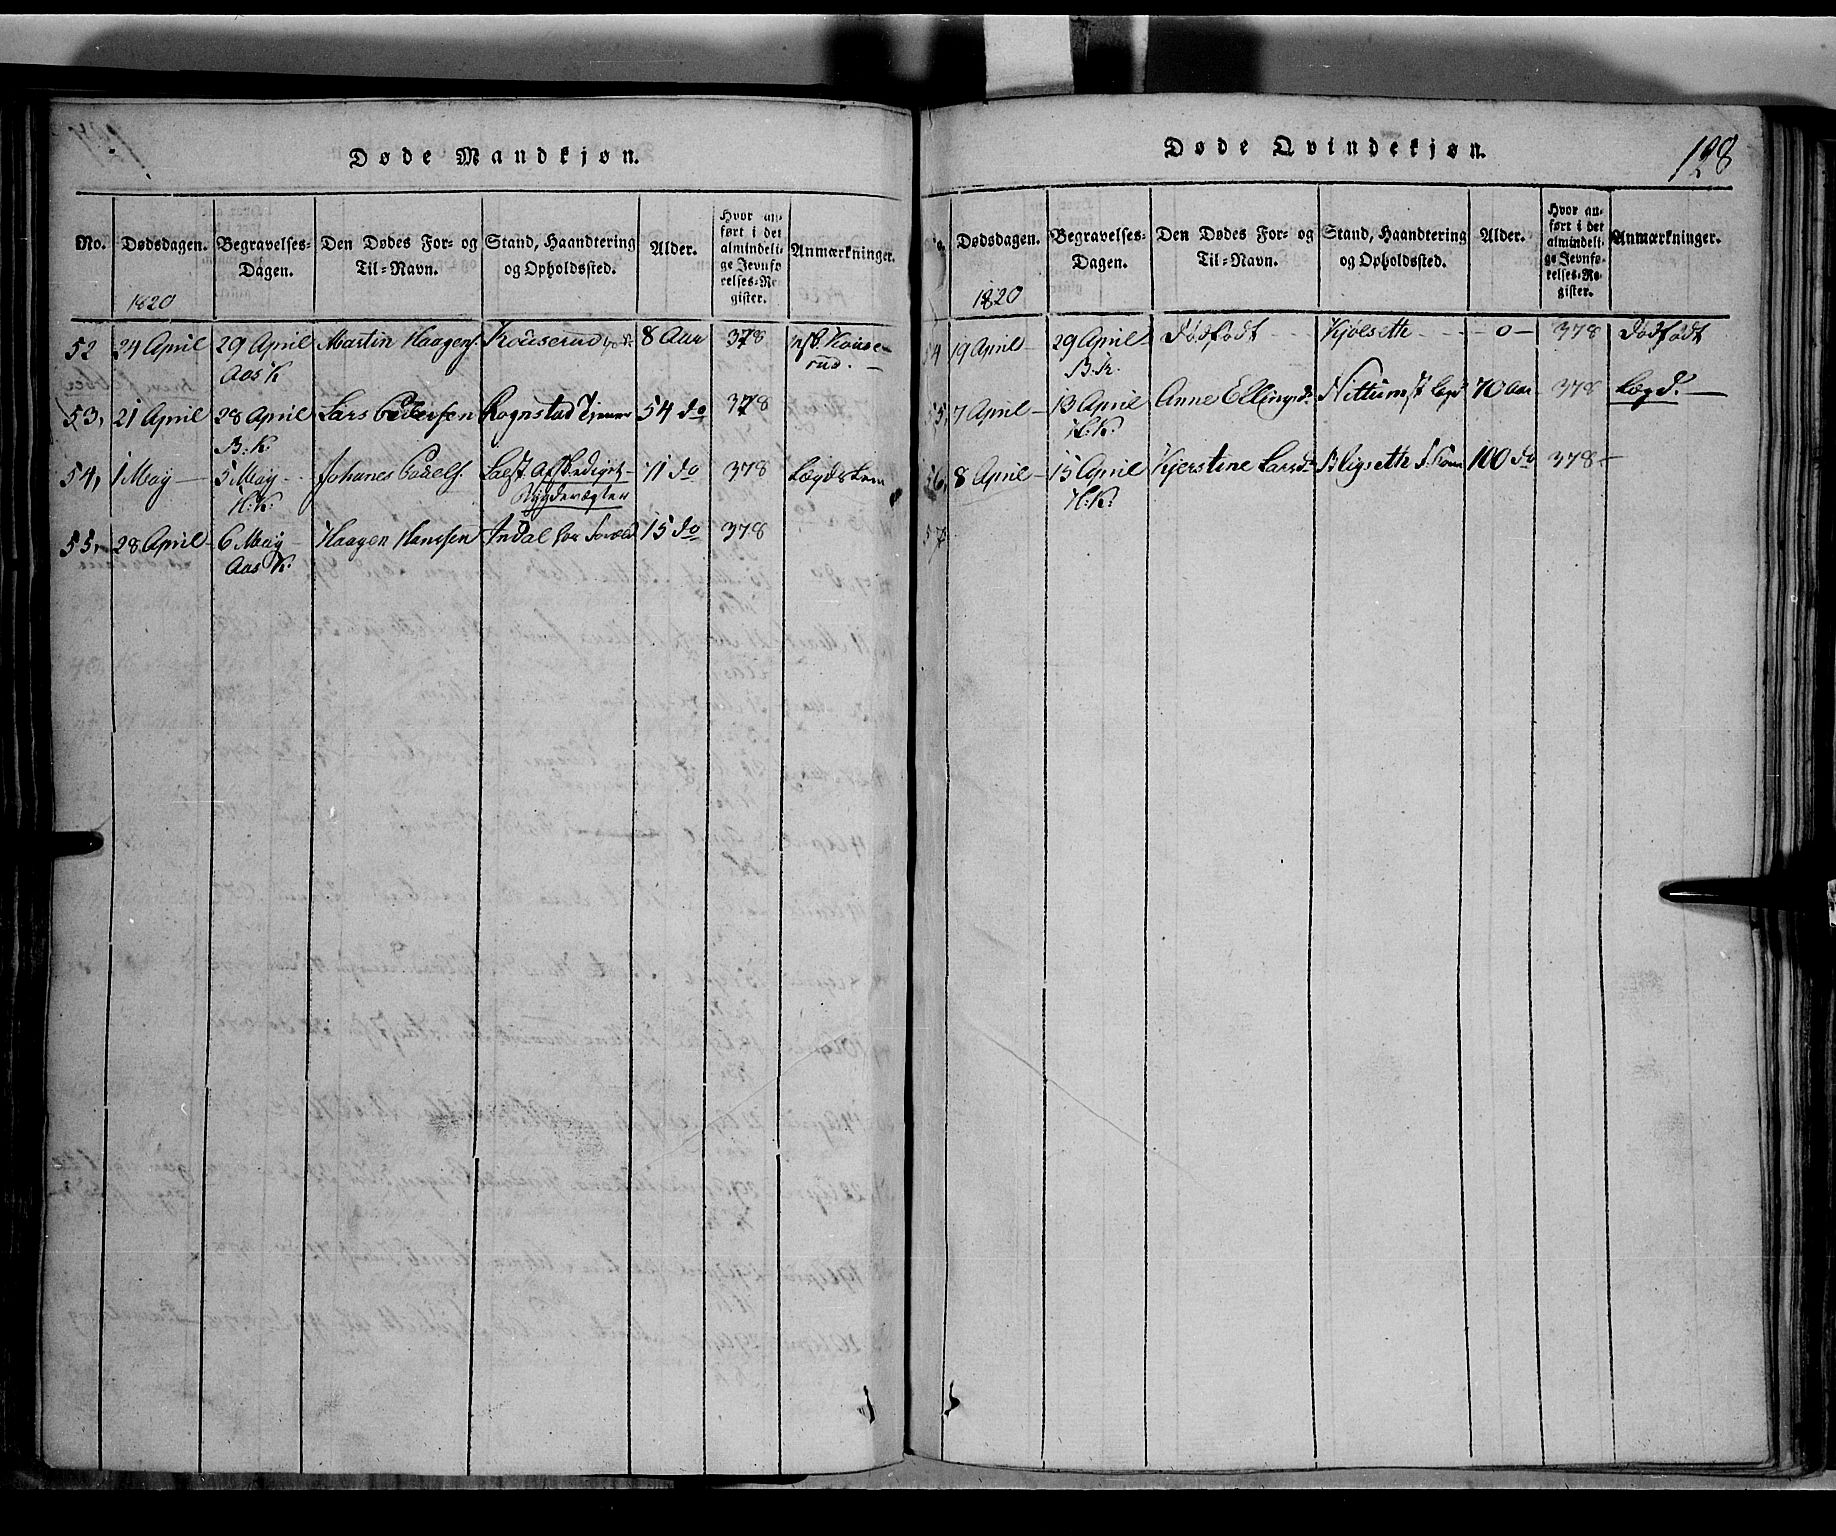 Døde Mandkjøn.
No. Dødsdagen. Begravelses-Dagen. Den Dødes For- og Til-Navn. Stand, Haandtering og Opholdssted. Alder. Hvor anført i det almindelige Jevnførelses-Register. Anmærkninger.
1820
52 24 April 29 April Martin Haagens. 8 Aar 378
Aas K
53, 21 April 28 April Lars Pedersen Rognstad 54 do 378
B. K.
54, 1 May 5 May Johanes 71 do 378 Lægdslem
H. K.
55, 28 April 6 May Haagen Hanssen Indal 15 do 378
Aas K.
Døde Qvindekjøn.
128
Dødsdagen. Begravelses-Dagen. Den Dødes For- og Til-Navn. Stand, Haandtering og Opholdssted. Alder. Hvor anført i det almindelige Jevnførelses-Register. Anmærkninger.
1820
54 19 April 29 April Dødfødt Kjølseth 0 378 Dødfødt
B. K.
55, 7 April 13 April Anne Ellingsd. 70 Aar 378 Lægd.
H. K.
56, 8 April 15 April Kjerstine Larsd. 100 do 378
H. K.
57